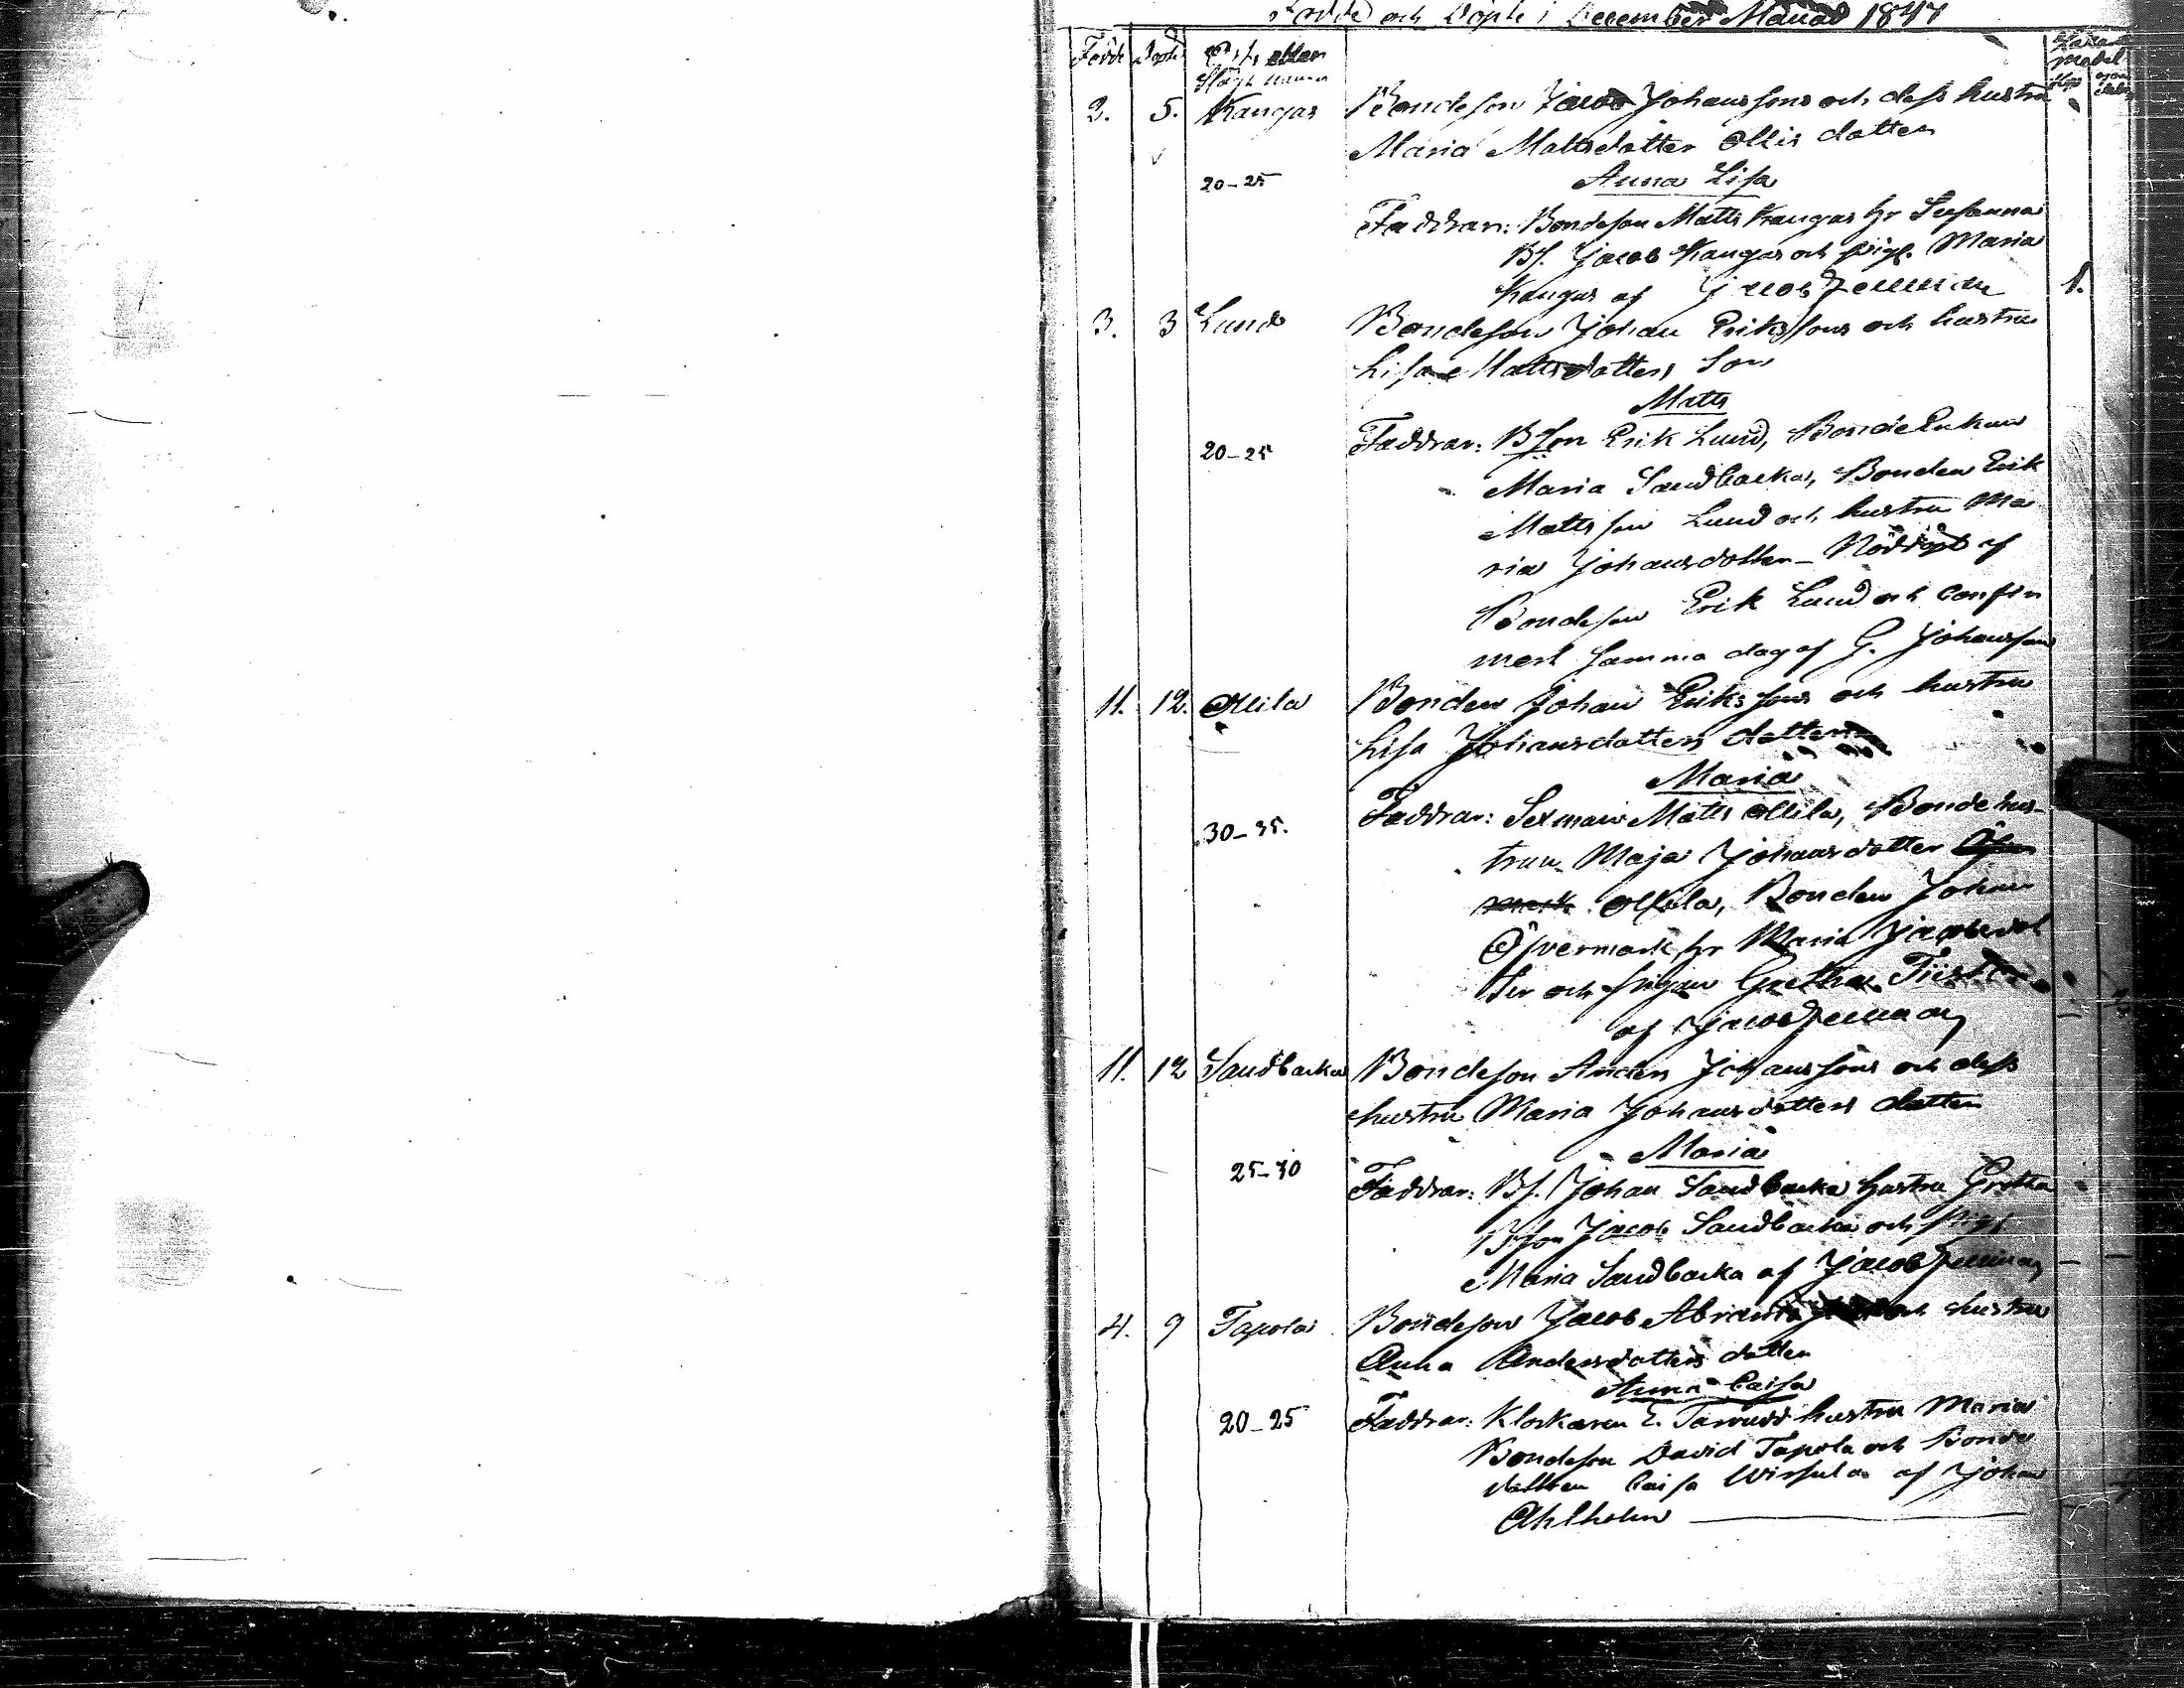 Födde och Döpte i December Månad 1847
Födde Döpte Orts eller
Slägt namn
2. 5. Kangas Bondeson Jacob Johanssons och dess hustru
Maria Mattsdotter Ollis dotter
20-25 Anna Lisa
Faddrar: Bondeson Matts Kangas hr Susanna
Bs. Jacob Kangas och pig. Maria
Kangas af Jacob 1.
3. 3 Lund Bondeson Johan Erikssons och hustru
Lisa Mattsdotters Son
Matts
20-25 Faddrar: B.son Erik Lund, Bonde Enkan
Maria Sandbacka, Bonden Erik
Mattsson Lund och hustru Ma
ria Johansdotter - Nöddöpt af
Bondeson Erik Lund och confir
mert samma dag af G. Johansson
11. 12. Ollila Bonden Johan Erikssons och hustru
Lisa Johansdotters dotter
Maria
30-35. Faddrar: Sexman Matts Ollila, Bonde hus-
trun Maja Johansdotter Öfver
mark Ollila, Bonden Johan
Öfvermark hr Maria Jacobsdot
ter och pigan Gretha
af Jacob
11. 12 Sandbacka Bondeson Anders Johanssons och dess
hustru Maria Johansdotters dotter
Maria
25-30 Faddrar: Bs. Johan Sandbacka hustru Gretha
B.son Jacob Sandbacka och pig.
Maria Sandbacka af Jacob
4. 9 Tapola Bondeson Jacob Abrams och hustru
Anna Andersdotters dotter
Anna Caisa
20-25 Faddrar: Klockaren E. hustru Maria
Bondeson David Tapola och Bonde
dottren Caisa Wirkula af Johan
Ahlholm